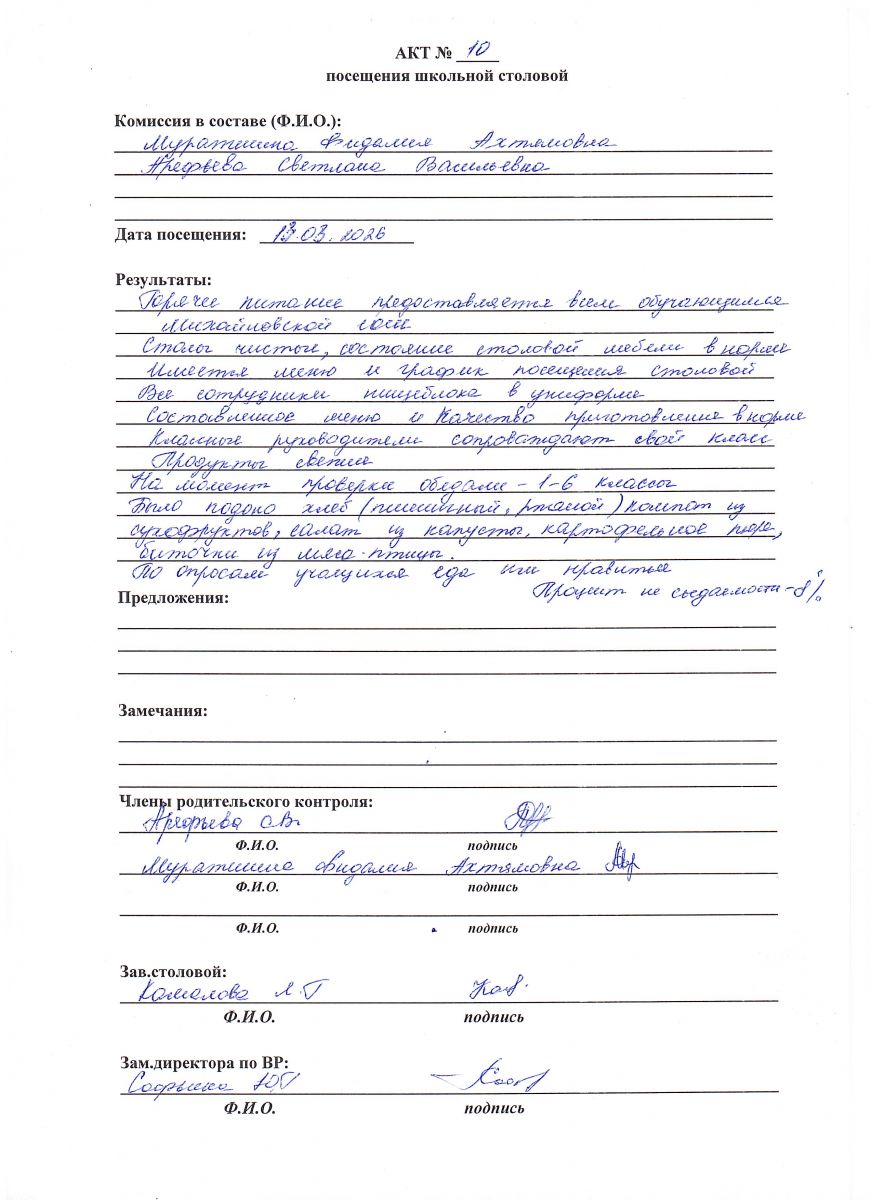 АКТ № 10
посещения школьной столовой
Комиссия в составе (Ф.И.О.):
Ахтямовна
Арефьева Светлана Васильевна
Дата посещения: 13.03.2026
Результаты:
Горячее питание предоставляется всем обучающимся
Михайловской
Столы чистые, состояние столовой мебели в норме
Имеется меню и график посещения столовой
Все сотрудники пищеблока в униформе
Составленное меню и качество приготовления в норме
Классные руководители сопровождают свой класс
Продукты свежие
На момент проверки обедали - 1-6 классы
Было подано хлеб (пшеничный, ржаной) компот из
сухофруктов, салат из капусты, картофельное пюре,
биточки из мяса птицы.
По опросам учащихся еда им нравится
Процент не съедаемости - 8%
Предложения:
Замечания:
Члены родительского контроля:
Арефьева С.В.
Ф.И.О. подпись
Ахтямовна
Ф.И.О. подпись
Ф.И.О. подпись
Зав.столовой:
Камалова Л.Г
Ф.И.О. подпись
Зам.директора по ВР:
Ф.И.О. подпись